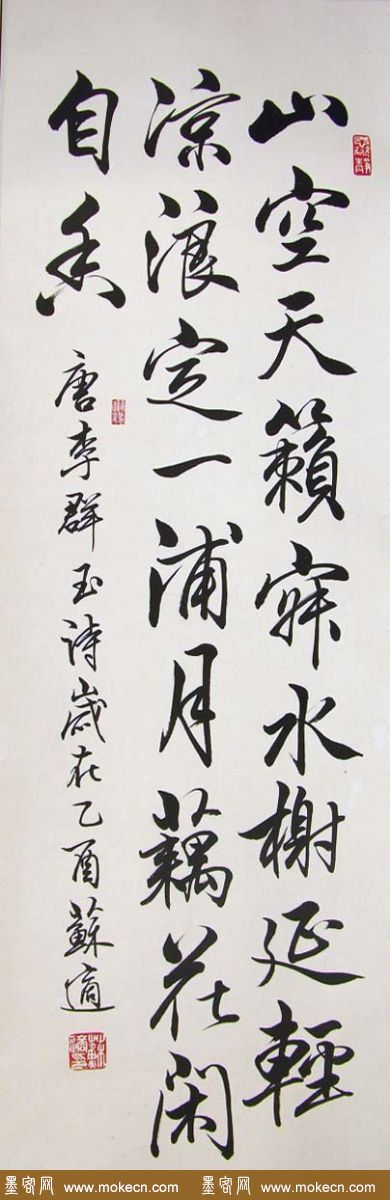 山空天籟寂水榭延輕
涼浪定一浦月藕花閑
自香
唐李群玉詩歲在乙酉蘇適
墨客网 www.mokecn.com 墨客网 www.mokecn.com